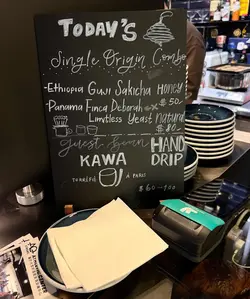 TODAY'S
Single Origin Combo
- Ethiopia Guji Sakicha Honey
$50
- Panama Finca Deborah
Limitless Yeast natural
$80
guest bean HAND
KAWA DRIP
TORRÉFIÉ À PARIS
$60-100